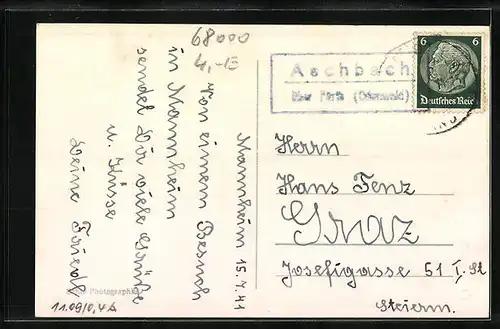 68000
4,-E
Aschbach
über Fürth (Odenwald)
6 6
Deutsches Reich
Mannheim 15.7.41
Von einem Besuch
in Mannheim
sendet Dir viele Grüße
u. Küsse
Deine Friedl
Herrn
Hans Tenz
Graz
Josefigasse 51 I. St
Steierm.
Photographie
11.09/0,4